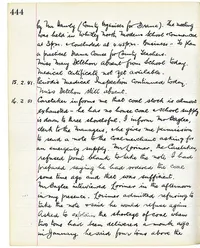 444
by Mr Handy (County Organiser for Drama). The meeting
was held in Whitby North Modern School commenced
at 2 p.m. & concluded at 4.30 p.m. Business – To plan
a Drama Course for County Teachers.
Miss Mary absent from School today.
Medical Certificate not yet available.
15. 2. 51. Periodic Medical Inspection continued today.
Miss still absent.
16. 2. 51 Caretaker informs me that coal stock is almost
exhausted – he has no house coal & school supply
is down to three shovelfuls. I inform Mr
clerk to the managers, who gives me permission
to send a note to the Coal merchant asking for
an emergency supply. Mr Lorimer, the Caretaker
refused point blank to take the note I had
prepared saying he had ordered the coal
some time ago and that was sufficient.
Mr interviewed Lorimer in the afternoon
in my presence. Lorimer admitted refusing to
take the note & said he would refuse again
Asked to explain the shortage of coal when
two tons had been delivered a month ago
in January, he said four tons above the